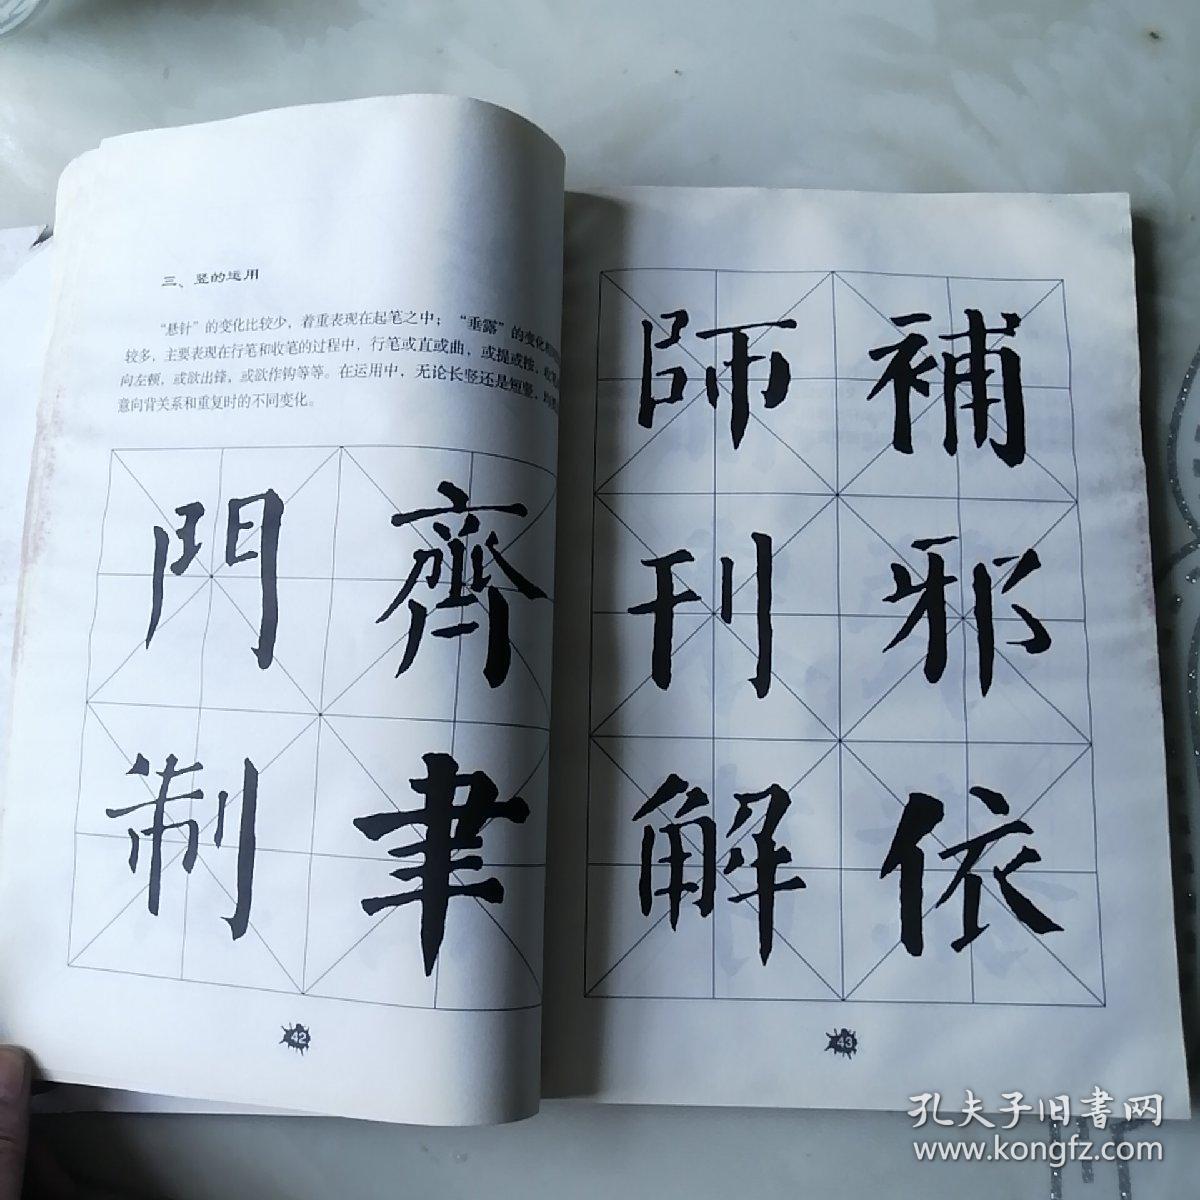 三、竖的运用
“悬针”的变化比较少，着重表现在起笔之中；“垂露”的变化
较多，主要表现在行笔和收笔的过程中，行笔或直或曲，或提或按，
向左顿，或欲出锋，或欲作钩等等。在运用中，无论长竖还是短竖，
意向背关系和重复时的不同变化。
門 齊
制 聿
42
師 補
刊 邪
解 依
43
孔夫子旧書网
www.kongfz.com